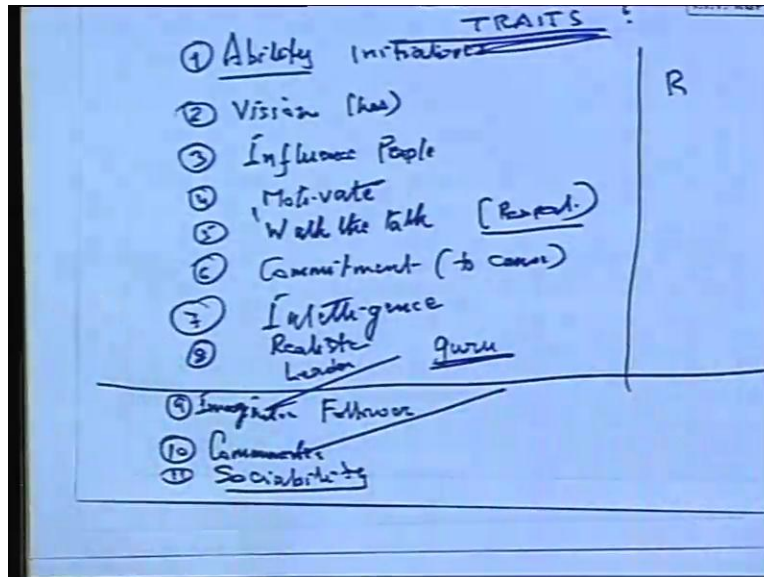 TRAITS :
① Ability Initiatives
R
② Vision (has)
③ Influence People
④ Motivate
⑤ Walk the talk (Respect.)
⑥ Commitment (to cause)
⑦ Intelligence
⑧ Realistic
Leader guru
⑨ Imagination Follower
⑩
⑪ Sociability